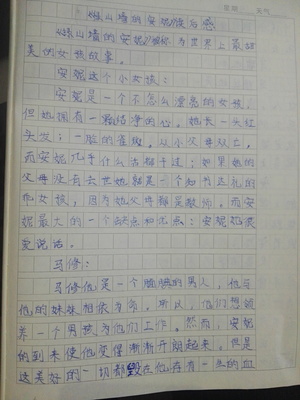 绿山墙的安妮读后感
绿山墙的安妮被称为世界上最甜
美的女孩故事。
安妮这个小女孩：
安妮是一个不怎么漂亮的女孩，
但她拥有一颗纯净的心。她长一头红
头发；一脸的雀斑。从小父母双亡，
而安妮几乎什么活都干过；如果她的
父母没有去世她就是一个知书达礼的
女孩，因为她父母都是教师。而安
妮最大的一个缺点和优点：安妮她很
爱说话。
马修：
马修他是一个腼腆的男人，他与
他的妹妹相依为命。所以，他们想领
养一个男孩为他们工作。然而，安妮
的到来使他变得渐渐开朗起来。但是
这美好的一切都毁在他存有一生的血